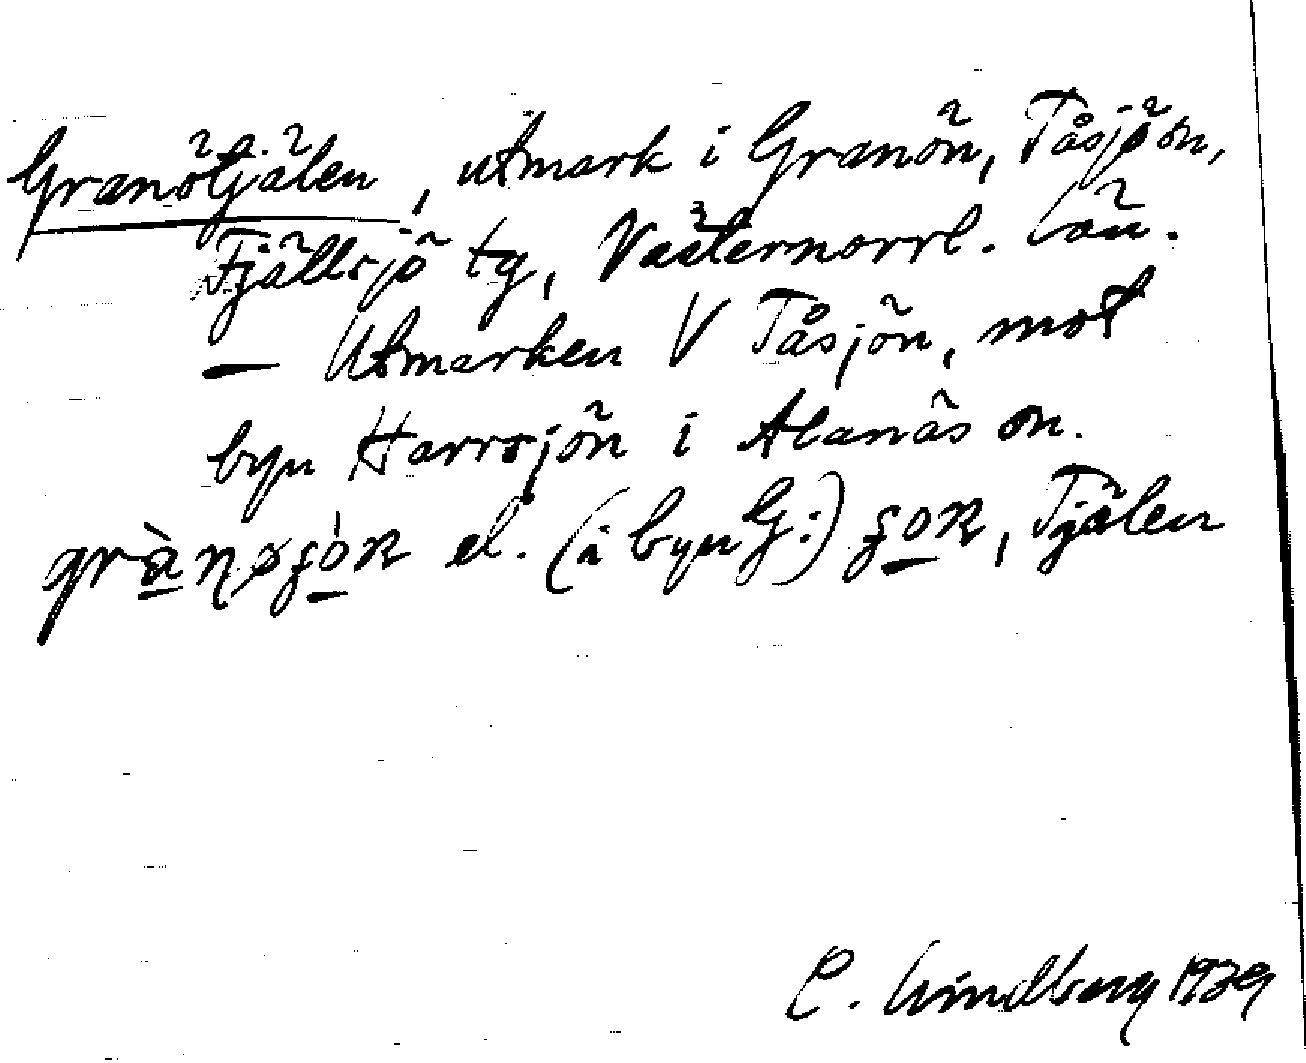 Granötjälen, utmark i Granön, Tåsjö sn,
Fjällsjö tg, Västernorrl. län.
— Utmarken V Tåsjön, mot
byn Harrsjön i Alanäs sn.
el. (i byn G:) , Tjälen
C. Lindberg 1939